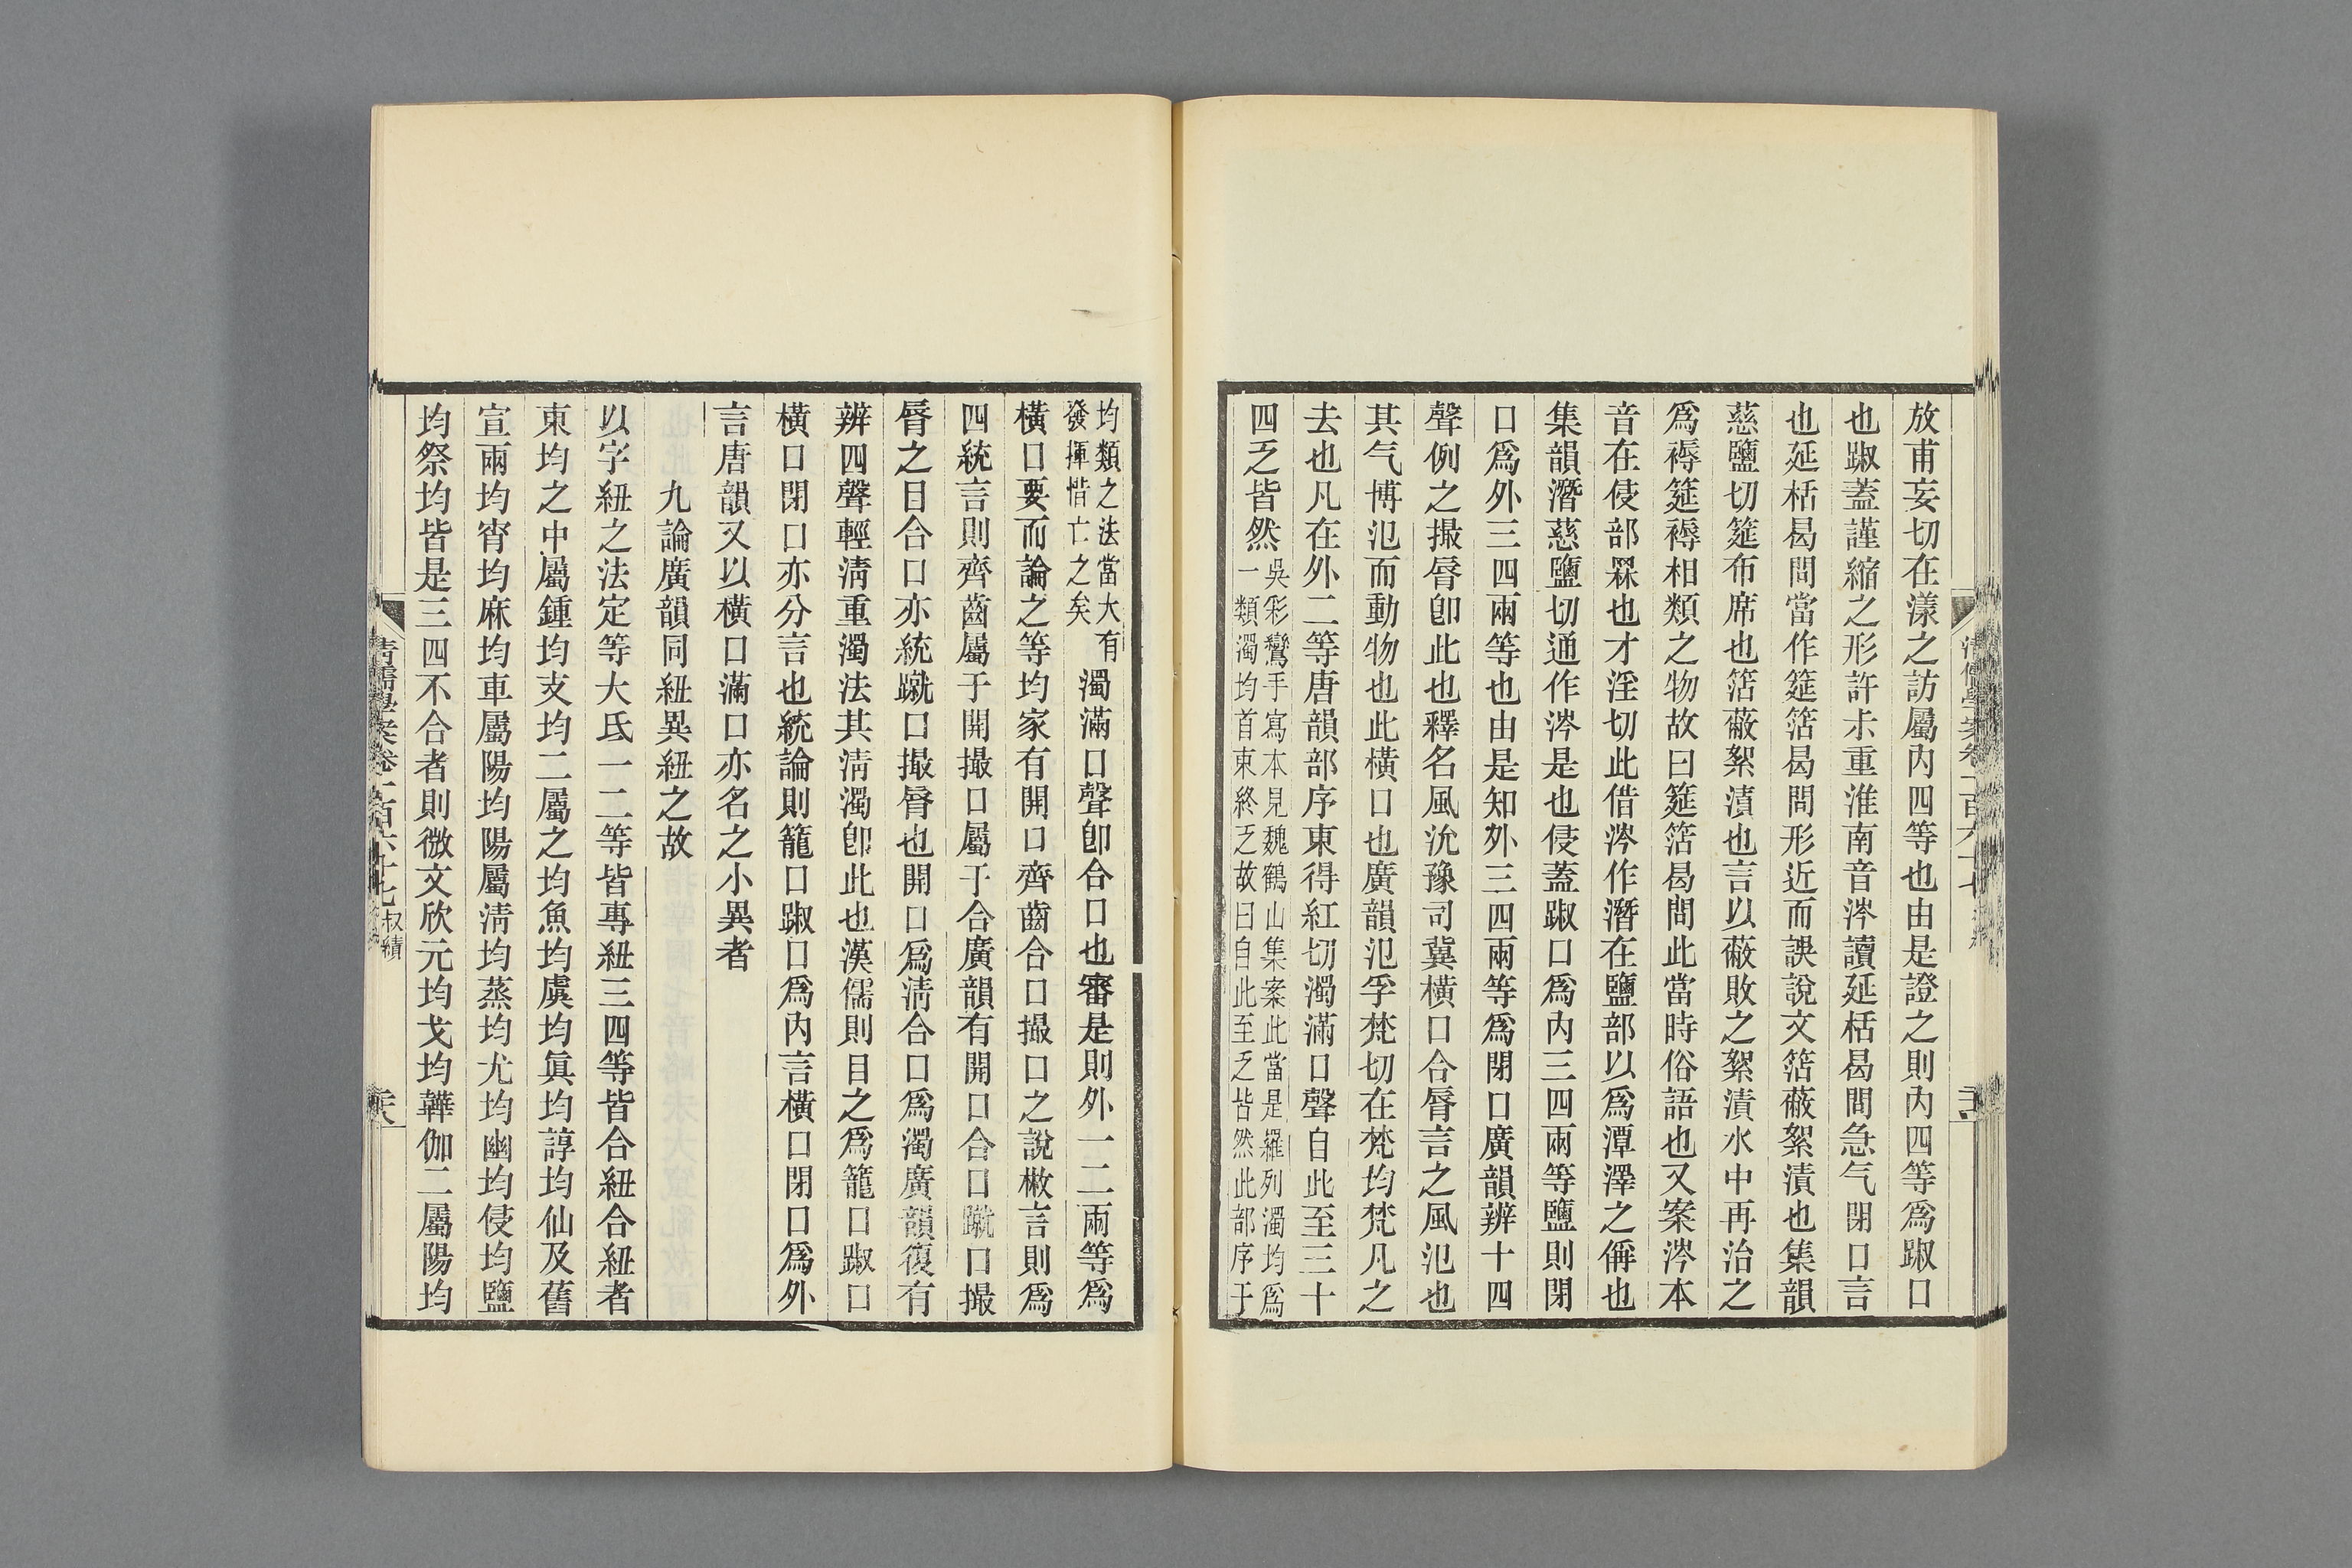 放甫妄切在漾之訪屬內四等也由是證之則內四等爲踧口
也踧蓋謹縮之形許尗重淮南音涔讀延栝曷問急气閉口言
也延栝曷問當作筵箈曷問形近而誤說文箈蔽絮漬也集韻
慈鹽切筵布席也箈蔽絮漬也言以蔽敗之絮漬水中再治之
爲褥筵褥相類之物故曰筵箈曷問此當時俗語也又案涔本
音在侵部罧也才淫切此借涔作潛在鹽部以爲潭澤之偁也
集韻潛慈鹽切通作涔是也侵蓋踧口爲內三四兩等鹽則閉
口爲外三四兩等也由是知外三四兩等爲閉口廣韻辨十四
聲例之撮脣卽此也釋名風沇豫司冀橫口合脣言之風氾也
其气博氾而動物也此橫口也廣韻氾孚梵切在梵均梵凡之
去也凡在外二等唐韻部序東得紅切濁滿口聲自此至三十
四乏皆然
吳彩鸞手寫本見魏鶴山集案此當是羅列濁均爲
一類濁均首東終乏故曰自此至乏皆然此部序于
均類之法當大有
發揮惜亡之矣
濁滿口聲卽合口也審是則外一二兩等爲
橫口要而論之等均家有開口齊齒合口撮口之說槪言則爲
四統言則齊齒屬于開撮口屬于合廣韻有開口合口蹴口撮
脣之目合口亦統蹴口撮脣也開口爲淸合口爲濁廣韻復有
辨四聲輕淸重濁法其淸濁卽此也漢儒則目之爲籠口踧口
橫口閉口亦分言也統論則籠口踧口爲內言橫口閉口爲外
言唐韻又以橫口滿口亦名之小異者
九論廣韻同紐異紐之故
以字紐之法定等大氐一二等皆專紐三四等皆合紐合紐者
東均之中屬鍾均支均二屬之均魚均虞均眞均諄均仙及舊
宣兩均宵均麻均車屬陽均陽屬淸均蒸均尤均幽均侵均鹽
均祭均皆是三四不合者則微文欣元均戈均鞾伽二屬陽均
淸儒學案卷一百六十七 叔績